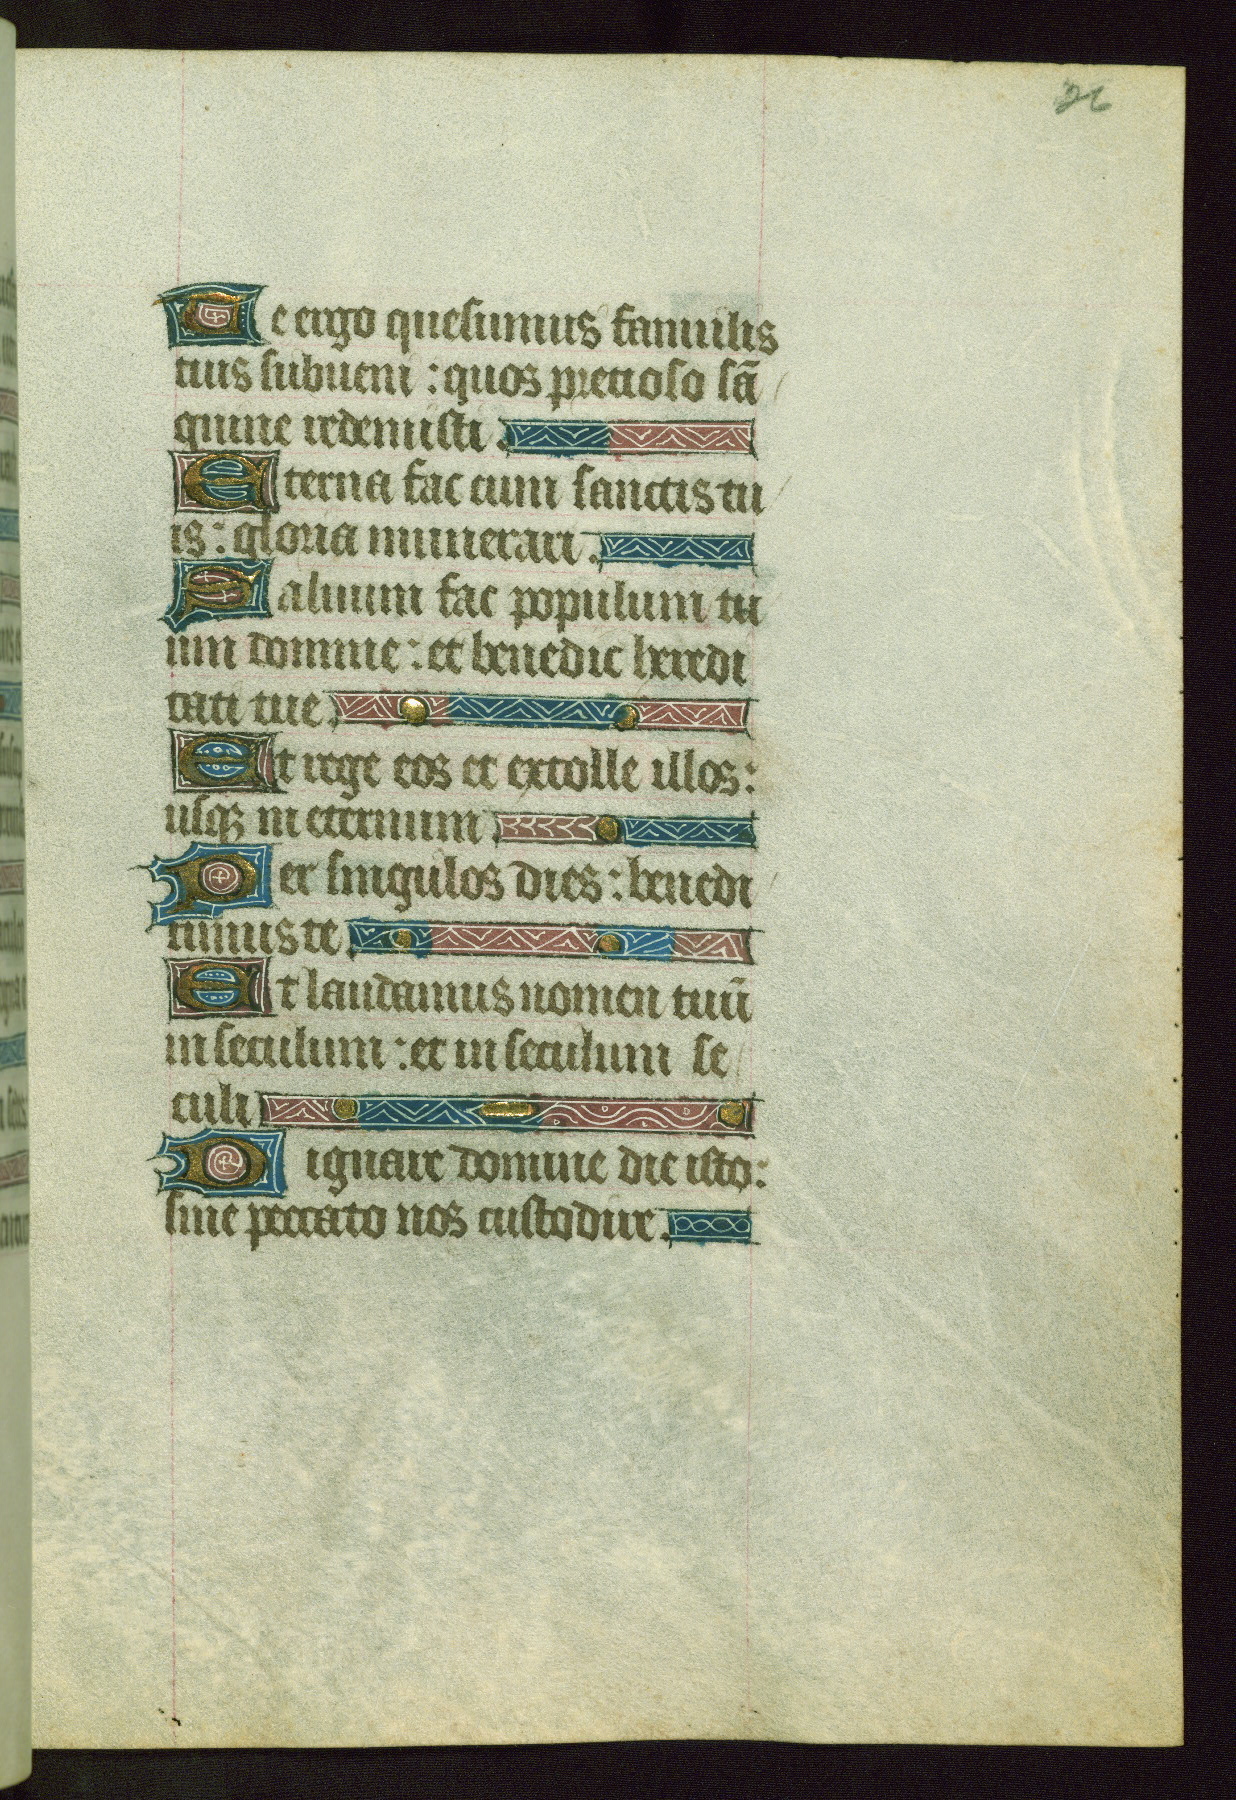 26
Te ergo quesumus famulis
tuis subueni : quos precioso sā
guine redemisti .
Eterna fac cum sanctis tu
is : gloria munerari .
Saluum fac populum tu
um domine : et benedic heredi
tati tue .
Et rege eos et extolle illos :
usqꝫ in eternum .
Per singulos dies : benedi
cimus te .
Et laudamus nomen tuū
in seculum : et in seculum se
culi .
Dignare domine die isto :
sine peccato nos custodire .